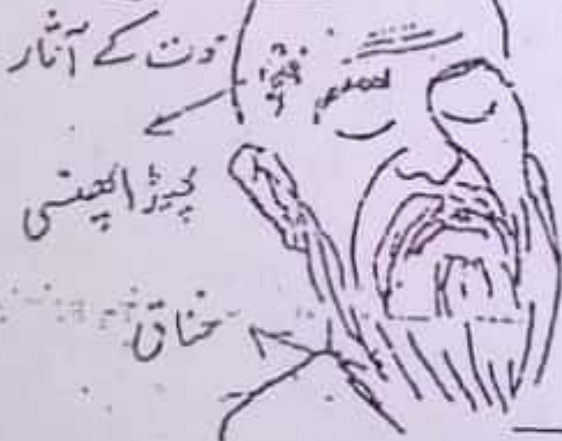 دق کے آثار
پھوڑا پھنسی
خناق